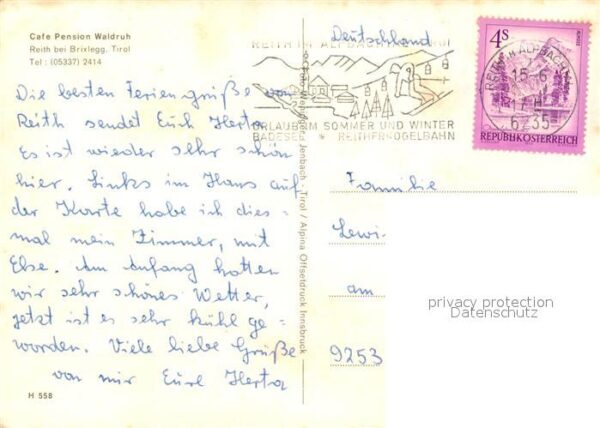 Cafe Pension Waldruh
Reith bei Brixlegg, Tirol
Tel: (05337) 2414
Die besten Feriengrüße von
Reith sendet Euch Herta
Es ist wieder sehr schön
hier. Links im Haus auf
der Karte habe ich dies=
mal mein Zimmer, mit
Else. Am Anfang hatten
wir sehr schönes Wetter,
jetzt ist es sehr kühl ge=
worden. Viele liebe Grüße
von mir Eure Herta
H 558
Jenbach - Tirol / Alpina Offsetdruck Innsbruck
Deutschland
REITH IM ALPBACHTAL
URLAUB IM SOMMER UND WINTER
BADESEE * REITHERKOGELBAHN
REITH IM ALPBACHTAL
15.-6.
6235
4S
REPUBLIK ÖSTERREICH
Familie
Lewi-
am
9253
privacy protection
Datenschutz